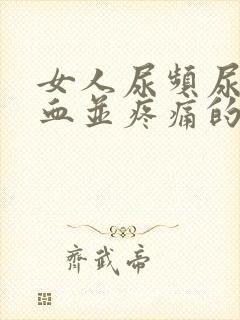 女人尿频尿
血并疼痛的
齊武帝